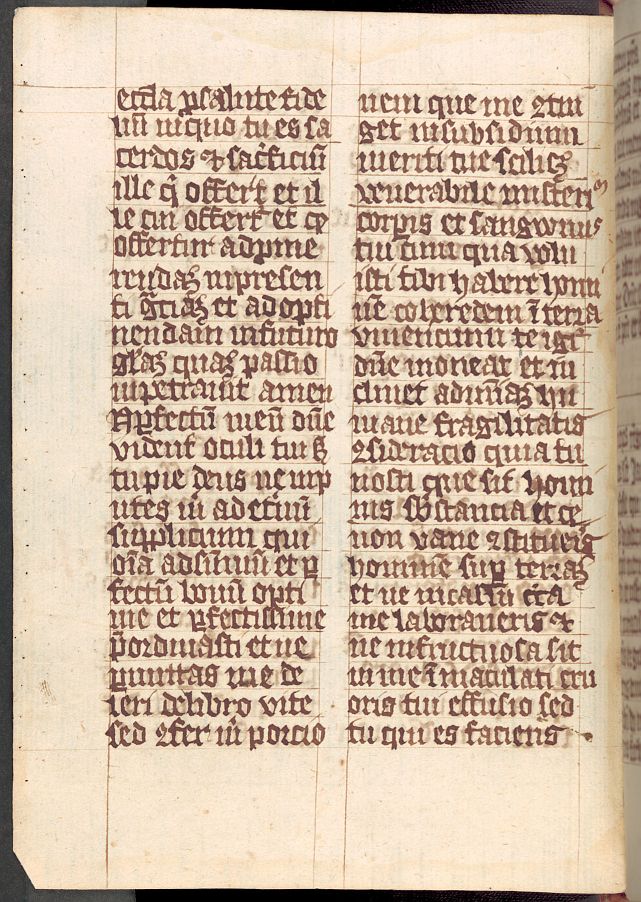 eccl̄a ꝓ salute fide
liū in quo tu es sa
cerdos ⁊ sac̄ficiū
ille q̄ offert et il
le cui offert̄ et ꝙ
offertur ad ꝓme
rendaꝫ in presen
ti gr̄ciaꝫ et ad opti
nendam in futuro
gl̄aꝫ quaꝫ passio
inpetrauit amen
Inꝑfectū meū dn̄e
vident oculi tui ꝫ
tu pie deus ne inp
utes m̄ ad et̄nū
supplicium qui
oīa ad sūmū et ꝑ
fectū bonū opti
me et ꝑfectissime
p̄ordinasti et ne
ꝑmittas me de
leri de libro vite
sed ꝯfer m̄ porcio
nem que me ꝯtin
get in subsidium
meriti tue scilicꝫ
venerabile misteriū
corpis et sangwinis
tui cum qua volu
isti tibi habere homi
nē coheredem ī terra
viuencium te igr̄
dn̄e moneat et in
clinet ad mīaꝫ hu
mane fragilitatis
ꝯsideracio quia tu
nosti que sit homi
nis sb̄stancia et ꝙ
non vane ꝯstitueris
hominē suꝑ terraꝫ
et ne incassū cir̄a
me laboraueris ⁊
ne infructuosa sit
in me īmaculati cru
oris tui effusio sed
tu qui es faciens